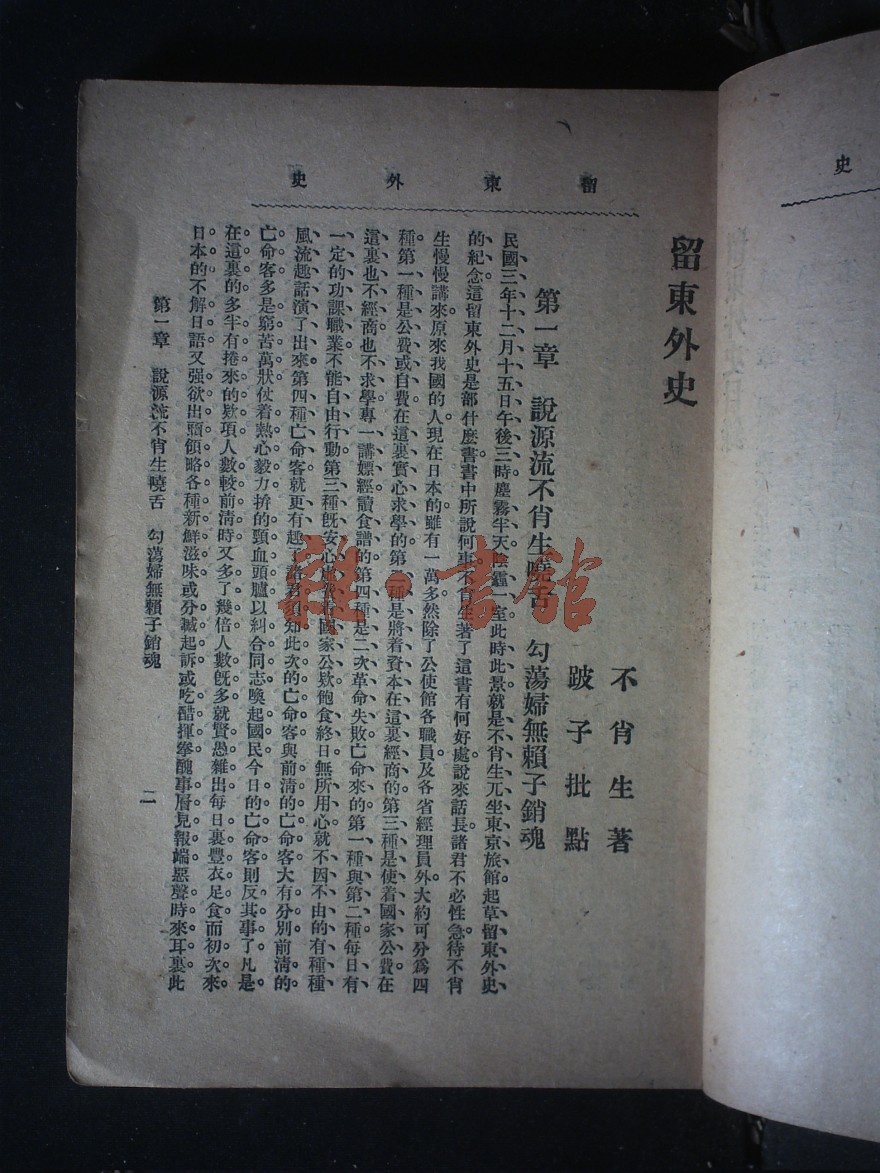 史外東留
史
留東外史
不肖生著
跛子批點
第一章 說源流不肖生曉舌 勾蕩婦無賴子銷魂
民國三年十二月十五日午後三時塵霧半天陰霾一室此時此景就是不肖生兀坐東京旅館起草留東外史
的紀念這留東外史是部什麼書書中所說何事不肖生著了這書有何好處說來話長諸君不必性急待不肖
生慢慢講來原來我國的人現在日本的雖有一萬多然除了公使館各職員及各省經理員外大約可分爲四
種第一種是公費或自費在這裏實心求學的第二種是將着資本在這裏經商的第三種是使着國家公費在
這裏也不經商也不求學專一講嫖經讀食譜的第四種是二次革命失敗亡命來的第一種與第二種每日有
一定的功課職業不能自由行動第三種既安心虛費着國家公欵飽食終日無所用心就不因不由的有種種
風流趣話演了出來第四種亡命客就更有趣了諸君須知此次的亡命客與前清的亡命客大有分別前清的
亡命客多是窮苦萬狀仗着熱心毅力拚的頸血頭臚以糾合同志喚起國民今日的亡命客則反其事了凡是
在這裏的多半有捲來的欵項人數較前清時又多了幾倍人數既多就賢愚雜出每日裏豐衣足食而初次來
日本的不解日語又强欲出頭領略各種新鮮滋味或分贓起訴或吃醋揮拳醜事層見報端惡聲時來耳裏此
第一章 說源流不肖生曉舌 勾蕩婦無賴子銷魂
二
雜·書館